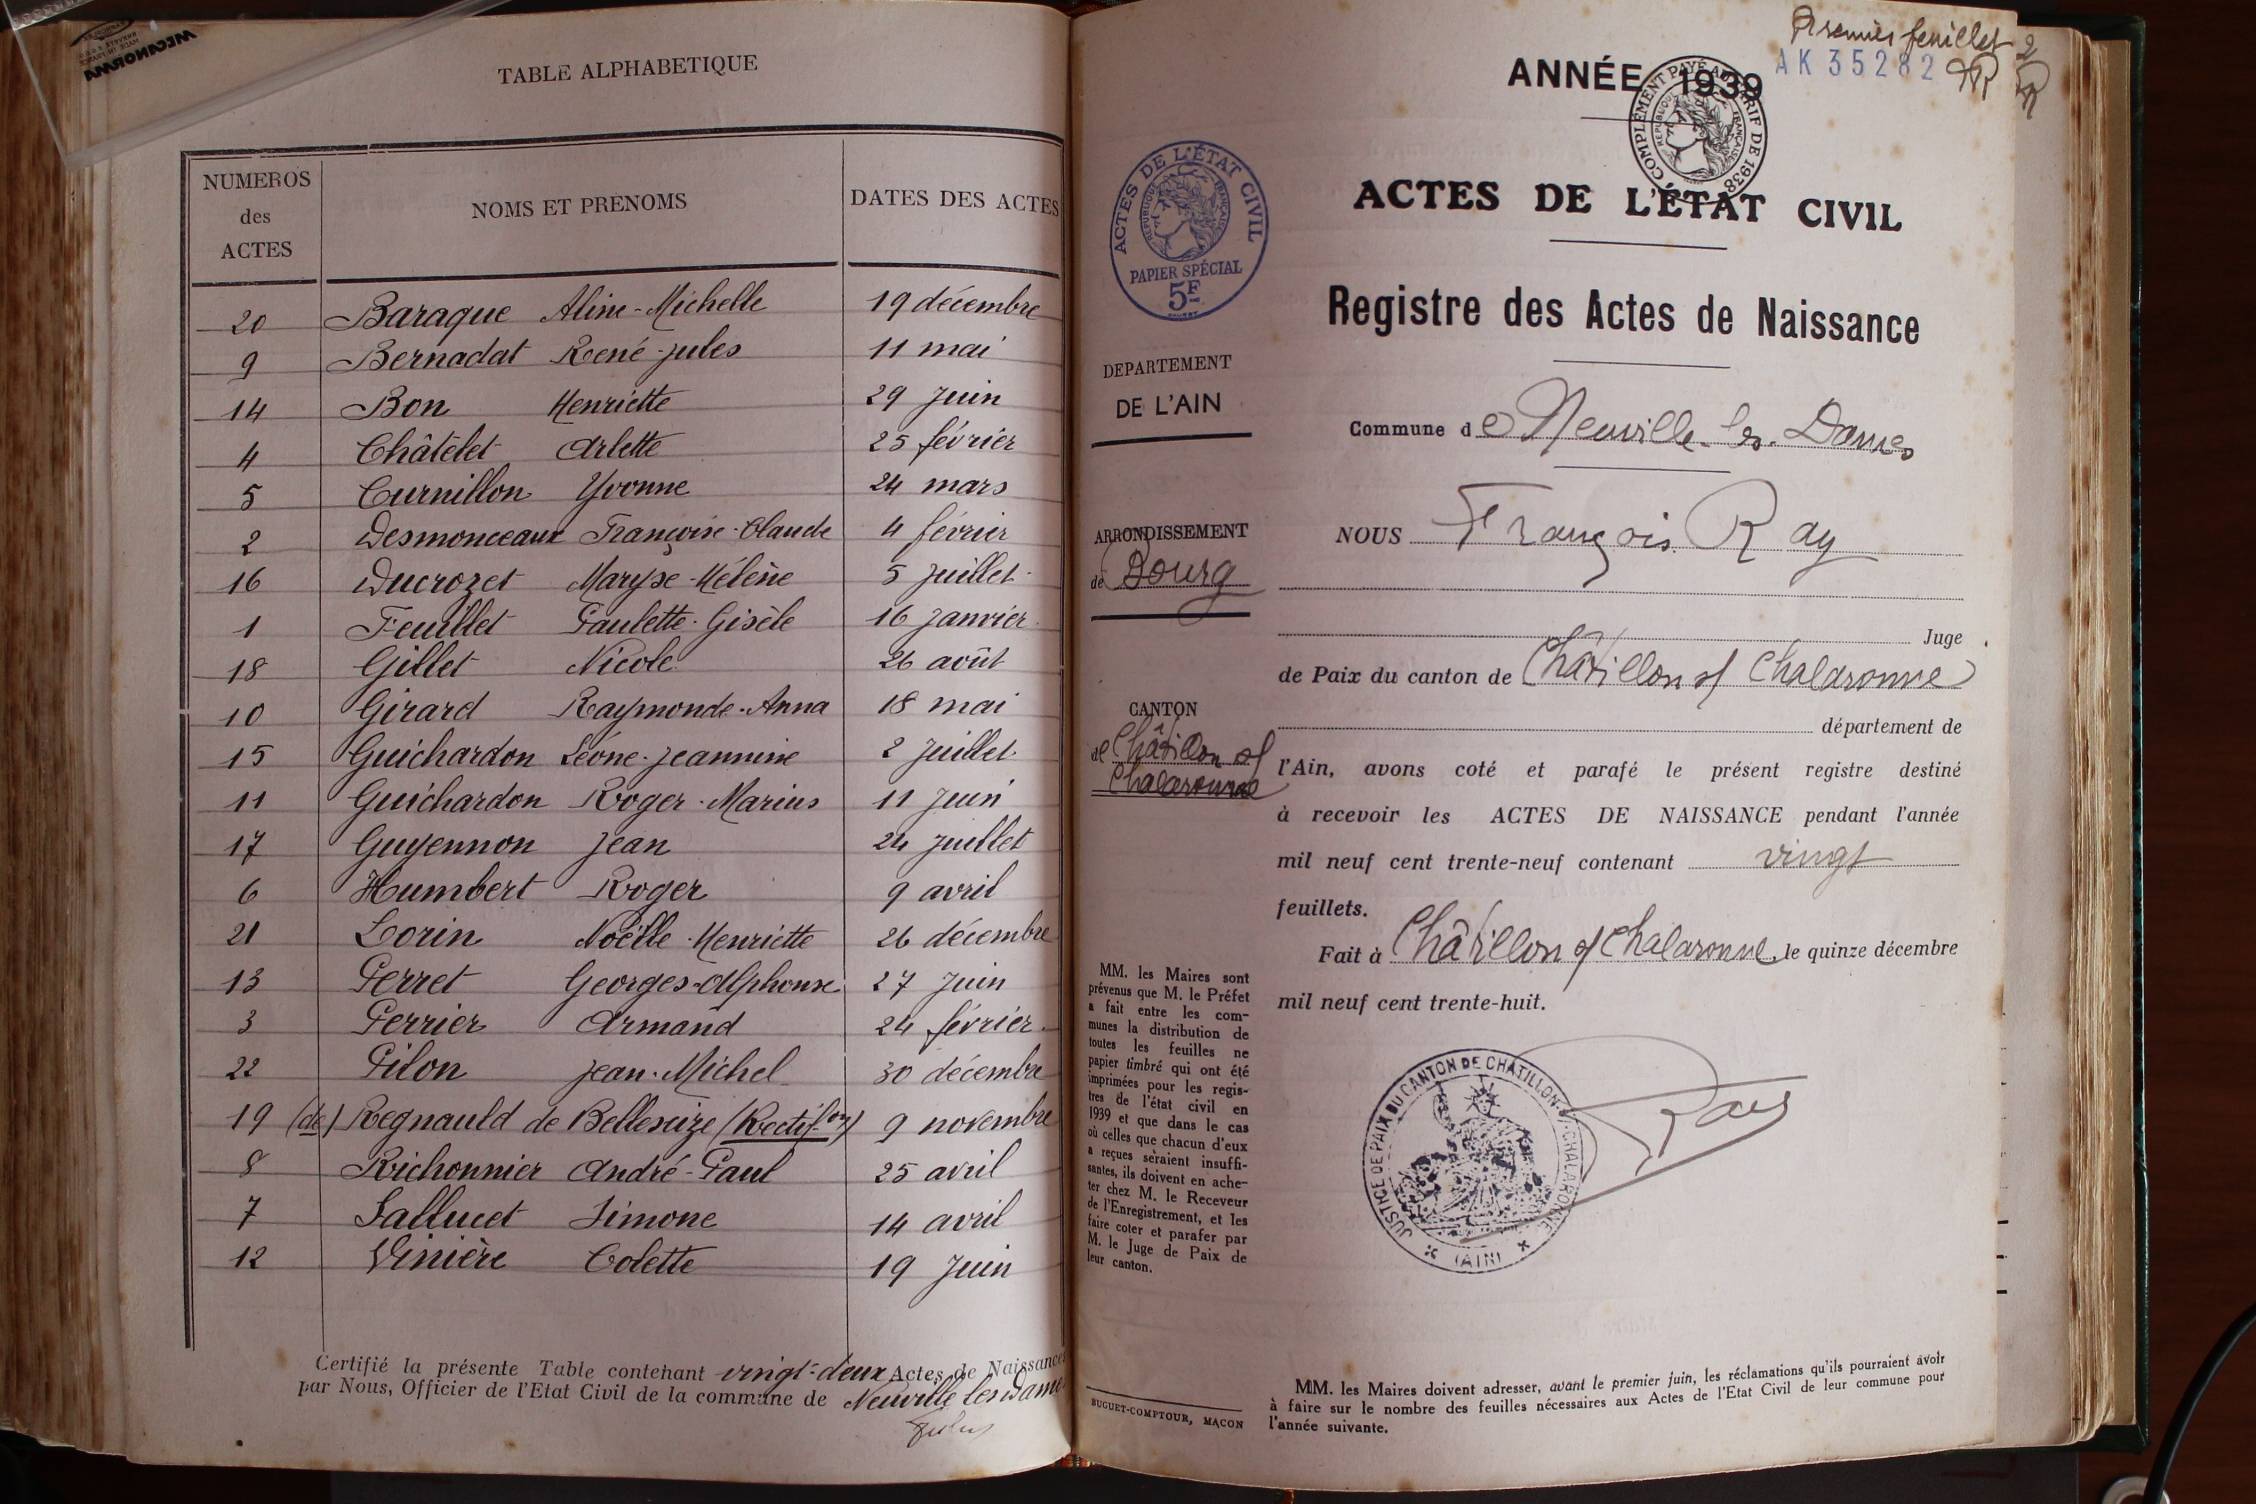 MECANORMA
TABLE ALPHABETIQUE
NUMEROS des ACTES NOMS ET PRÉNOMS DATES DES ACTES
20 Baraque Aline-Michelle 19 décembre
9 Bernadat René-Jules 11 mai
14 Bon Henriette 29 Juin
4 Châtelet Arlette 25 février
5 Curnillon Yvonne 24 mars
2 Desmonceaux Françoise-Claude 4 février
16 Ducrozet Maryse-Hélène 5 Juillet
1 Feuillet Paulette-Gisèle 16 Janvier
18 Gillet Nicole 26 août
10 Girard Raymonde-Anna 18 mai
15 Guichardon Léone-Jeannine 2 Juillet
11 Guichardon Roger-Marius 11 Juin
17 Guyennon Jean 24 Juillet
6 Humbert Roger 9 avril
21 Lorin Noëlle-Henriette 26 décembre
13 Perret Georges-Alphonse 27 Juin
3 Perrier Armand 24 février
22 Pilon Jean-Michel 30 décembre
19 (de) Regnauld de Bellescize (Rectif.on) 9 novembre
8 Richonnier André-Paul 25 avril
7 Sallucet Simone 14 avril
12 Vinière Colette 19 Juin
Certifié la présente Table contenant vingt-deux Actes de Naissance
par Nous, Officier de l'Etat Civil de la commune de Neuville les Dames
Premier feuillet
AK 35282
ANNÉE 1939
COMPLÉMENT PAYÉ AU TARIF DE 1938
RÉPUBLIQUE FRANÇAISE
ACTES DE L'ÉTAT CIVIL
RÉPUBLIQUE FRANÇAISE
PAPIER SPÉCIAL
5F
ACTES DE L'ÉTAT CIVIL
Registre des Actes de Naissance
DEPARTEMENT
DE L'AIN
Commune de Neuville-les-Dames
ARRONDISSEMENT
de Bourg
NOUS François Ray
Juge
de Paix du canton de Châtillon s/ Chalaronne
département de
CANTON
de Châtillon s/
Chalaronne
l'Ain, avons coté et parafé le présent registre destiné
à recevoir les ACTES DE NAISSANCE pendant l'année
mil neuf cent trente-neuf contenant vingt
feuillets.
Fait à Châtillon s/ Chalaronne, le quinze décembre
mil neuf cent trente-huit.
MM. les Maires sont
prévenus que M. le Préfet
a fait entre les com-
munes la distribution de
toutes les feuilles ne
papier timbré qui ont été
imprimées pour les regis-
tres de l'état civil en
1939 et que dans le cas
où celles que chacun d'eux
a reçues seraient insuffi-
santes, ils doivent en ache-
ter chez M. le Receveur
de l'Enregistrement, et les
faire coter et parafer par
M. le Juge de Paix de
leur canton.
JUSTICE DE PAIX DU CANTON DE CHÂTILLON-S/-CHALARONNE
(AIN)
Ray
BUGUET-COMPTOUR, MACON
MM. les Maires doivent adresser, avant le premier juin, les réclamations qu'ils pourraient avoir
à faire sur le nombre des feuilles nécessaires aux Actes de l'Etat Civil de leur commune pour
l'année suivante.